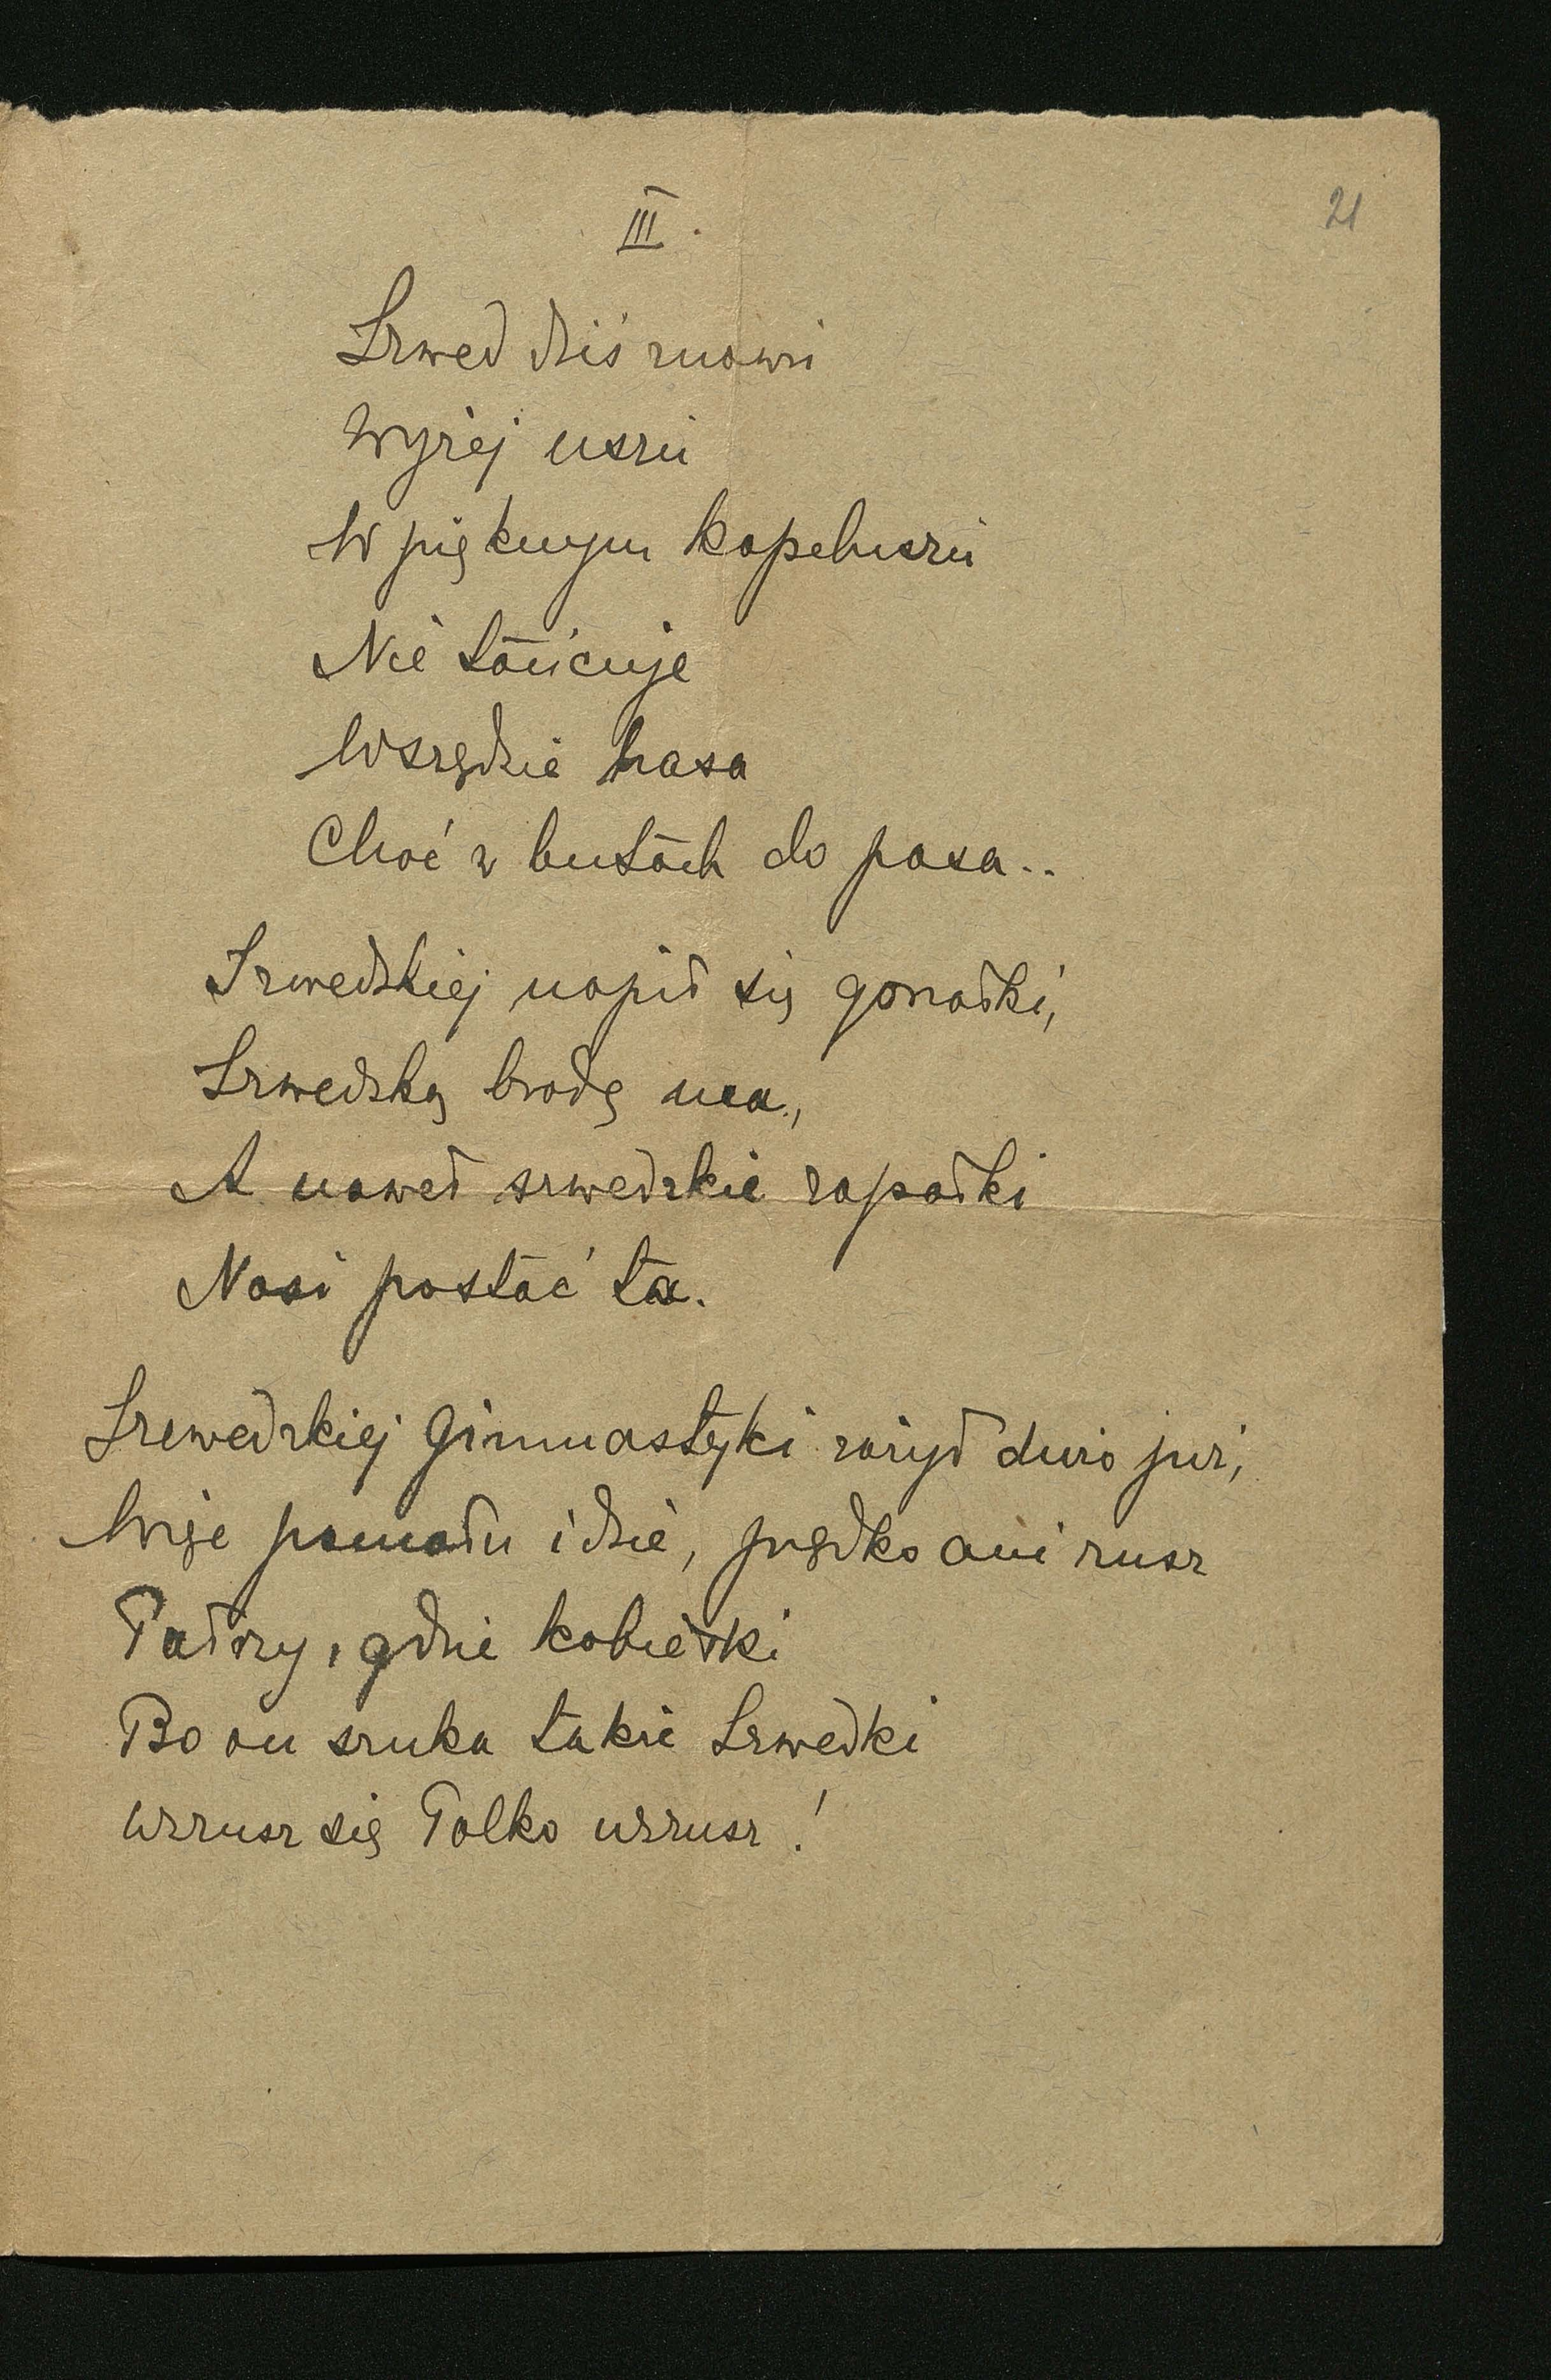 21
III.
Szwed dziś znowu
Wyżej uszu
W pięknym kapeluszu
Nie tańcuje
Wszędzie hasa
Choć w butach do pasa..
Szwedzkiej napił się gorzałki,
Szwedzką brodę ma,
A nawet szwedzkie zapałki
Nosi postać ta.
Szwedzkiej Gimnastyki zażył dużo już,
Więc pomału idzie, prędko ani rusz
Patrzy, gdzie kobietki
Bo on szuka takie Szwedki
Wzrusz się Polko wzrusz!